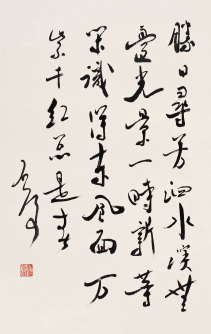 勝日尋芳泗水濱無
邊光景一時新等
閒識得東風面万
紫千紅總是春